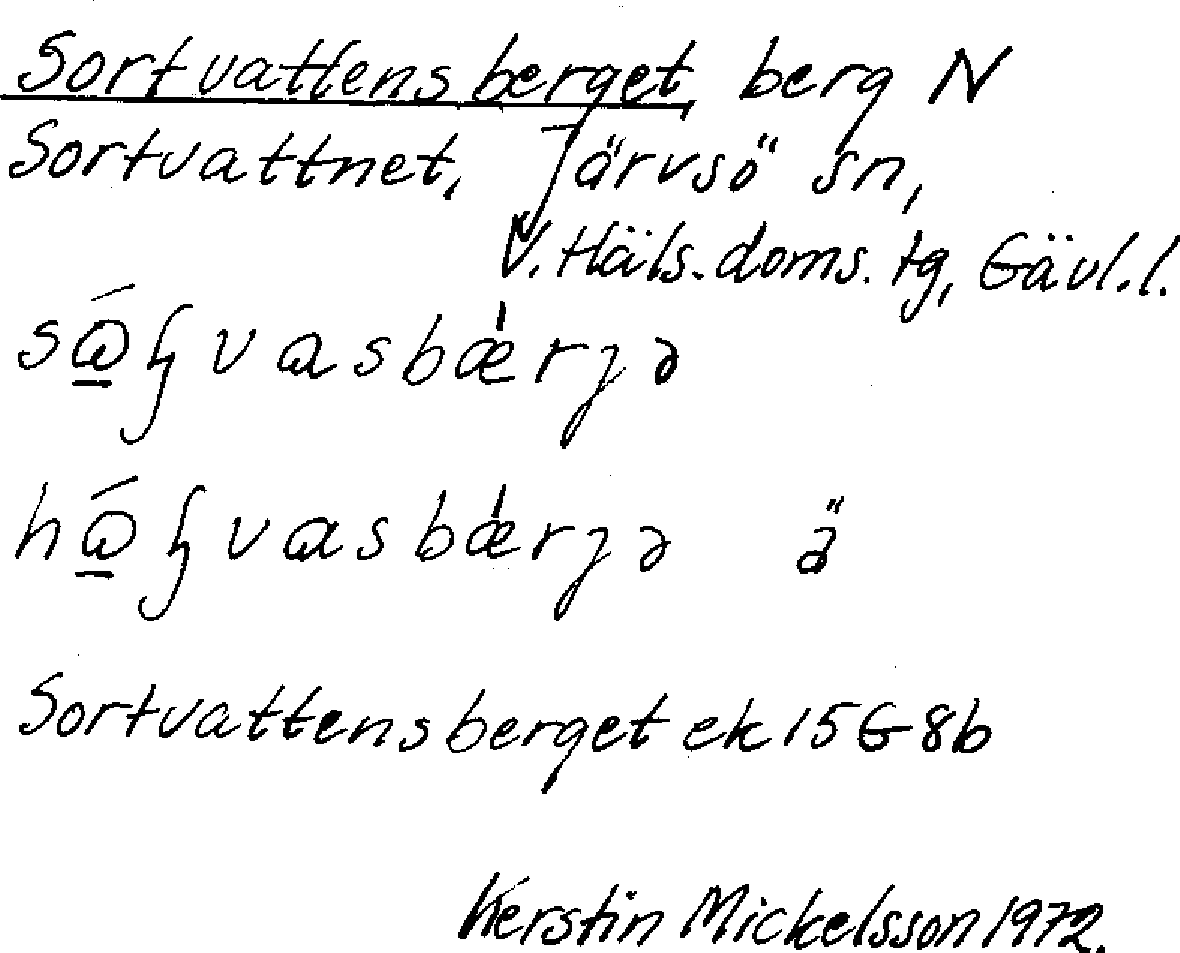 Sortvattensberget, berg N
Sortvattnet, Järvsö sn,
V. Häls. doms. tg, Gävl. l.
ä
Sortvattensberget ek 15G 8b
Kerstin Mickelsson 1972.